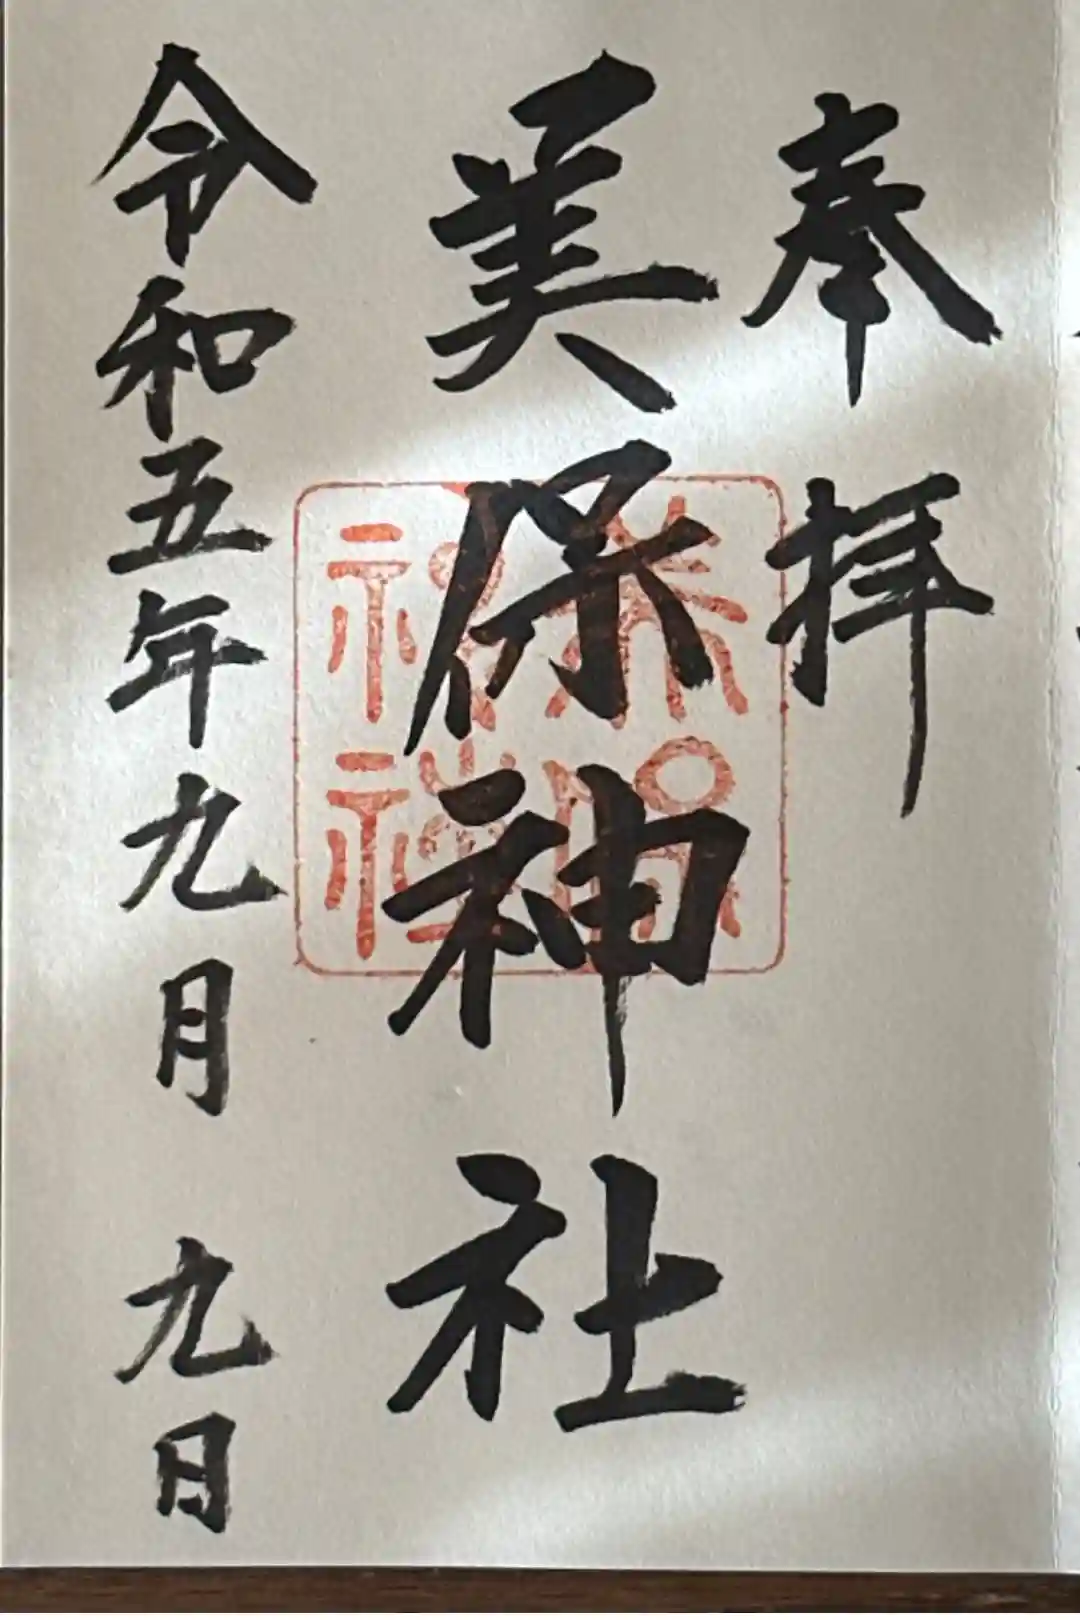 奉拝
美保神社
美保
神社
令和五年九月九日